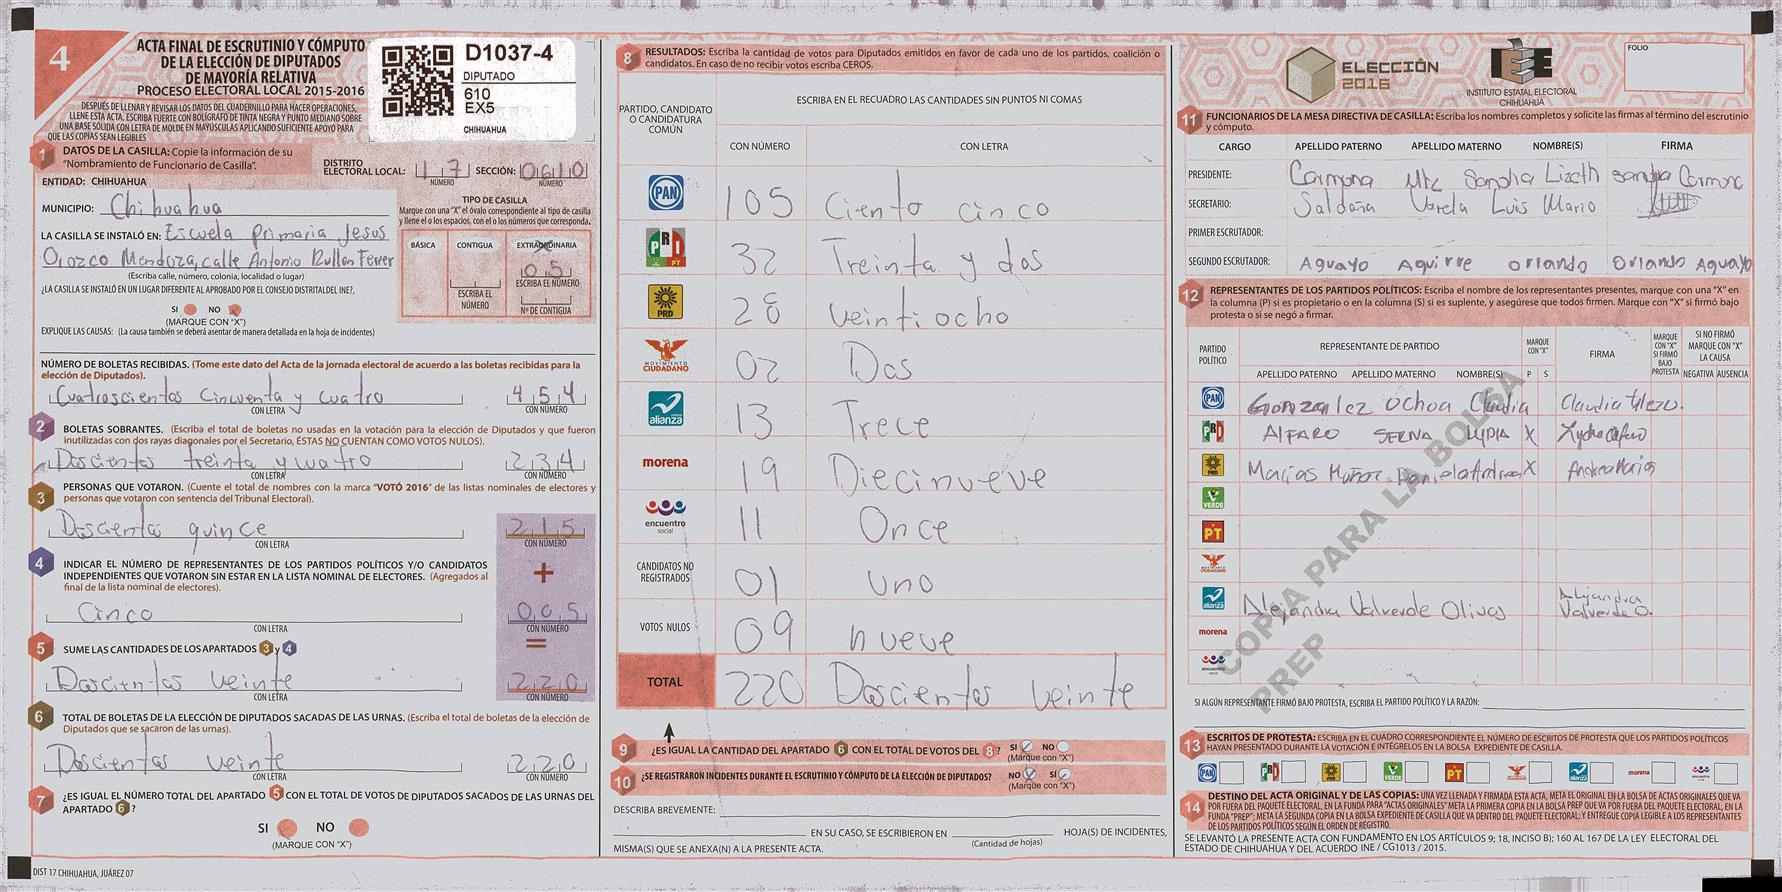 4
ACTA FINAL DE ESCRUTINIO Y CÓMPUTO
DE LA ELECCIÓN DE DIPUTADOS
DE MAYORÍA RELATIVA
PROCESO ELECTORAL LOCAL 2015-2016
DESPUÉS DE LLENAR Y REVISAR LOS DATOS DEL CUADERNILLO PARA HACER OPERACIONES,
LLENE ESTA ACTA. ESCRIBA FUERTE CON BOLÍGRAFO DE TINTA NEGRA Y PUNTO MEDIANO SOBRE
UNA BASE SÓLIDA CON LETRA DE MOLDE EN MAYÚSCULAS APLICANDO SUFICIENTE APOYO PARA
QUE LAS COPIAS SEAN LEGIBLES
D1037-4
DIPUTADO
610
EX5
CHIHUAHUA
1 DATOS DE LA CASILLA: Copie la información de su
"Nombramiento de Funcionario de Casilla".
DISTRITO
ELECTORAL LOCAL: 17 SECCIÓN: 0610
NÚMERO NÚMERO
ENTIDAD: CHIHUAHUA
MUNICIPIO: Chihuahua
LA CASILLA SE INSTALÓ EN: Escuela Primaria Jesus
Orozco Mendoza, calle Antonio Rullan Ferrer
(Escriba calle, número, colonia, localidad o lugar)
¿LA CASILLA SE INSTALÓ EN UN LUGAR DIFERENTE AL APROBADO POR EL CONSEJO DISTRITAL DEL INE?,
SI NO
(MARQUE CON "X")
EXPLIQUE LAS CAUSAS: (La causa también se deberá asentar de manera detallada en la hoja de incidentes)
TIPO DE CASILLA
Marque con una "X" el óvalo correspondiente al tipo de casilla
y llene el o los espacios, con el o los números que corresponda.
BÁSICA CONTIGUA EXTRAORDINARIA
05
ESCRIBA EL NÚMERO
ESCRIBA EL
NÚMERO
Nº DE CONTIGUA
NÚMERO DE BOLETAS RECIBIDAS. (Tome este dato del Acta de la jornada electoral de acuerdo a las boletas recibidas para la
elección de Diputados).
Cuatroscientos Cincuenta y cuatro 454
CON LETRA CON NÚMERO
2 BOLETAS SOBRANTES. (Escriba el total de boletas no usadas en la votación para la elección de Diputados y que fueron
inutilizadas con rayas diagonales por el Secretario, ÉSTAS NO CUENTAN COMO VOTOS NULOS).
Doscientos treinta y cuatro 234
CON LETRA CON NÚMERO
3 PERSONAS QUE VOTARON. (Cuente el total de nombres con la marca "VOTÓ 2016" de las listas nominales de electores y
personas que votaron con sentencia del Tribunal Electoral).
Doscientos quince 215
CON LETRA CON NÚMERO
4 INDICAR EL NÚMERO DE REPRESENTANTES DE LOS PARTIDOS POLÍTICOS Y/O CANDIDATOS
INDEPENDIENTES QUE VOTARON SIN ESTAR EN LA LISTA NOMINAL DE ELECTORES. (Agregados al
final de la lista nominal de electores).
+
Cinco 005
CON LETRA CON NÚMERO
5 SUME LAS CANTIDADES DE LOS APARTADOS 3 y 4 =
Doscientos veinte 220
CON LETRA CON NÚMERO
6 TOTAL DE BOLETAS DE LA ELECCIÓN DE DIPUTADOS SACADAS DE LAS URNAS. (Escriba el total de boletas de la elección de
Diputados que se sacaron de las urnas).
Doscientos veinte 220
CON LETRA CON NÚMERO
7 ¿ES IGUAL EL NÚMERO TOTAL DEL APARTADO 5 CON EL TOTAL DE VOTOS DE DIPUTADOS SACADOS DE LAS URNAS DEL
APARTADO 6?
SI NO
(MARQUE CON "X")
DIST 17 CHIHUAHUA, JUÁREZ 07
8 RESULTADOS: Escriba la cantidad de votos para Diputados emitidos en favor de cada uno de los partidos, coalición o
candidatos. En caso de no recibir votos escriba CEROS.
PARTIDO, CANDIDATO
O CANDIDATURA
COMÚN
ESCRIBA EN EL RECUADRO LAS CANTIDADES SIN PUNTOS NI COMAS
CON NÚMERO CON LETRA
PAN 105 Ciento cinco
PRI PT 32 Treinta y dos
PRD 28 veintiocho
MOVIMIENTO CIUDADANO 02 Dos
alianza 13 Trece
morena 19 Diecinueve
encuentro social 11 Once
CANDIDATOS NO
REGISTRADOS 01 uno
VOTOS NULOS 09 nueve
TOTAL 220 Doscientos veinte
9 ¿ES IGUAL LA CANTIDAD DEL APARTADO 6 CON EL TOTAL DE VOTOS DEL 8? SI NO
(Marque con "X")
10 ¿SE REGISTRARON INCIDENTES DURANTE EL ESCRUTINIO Y CÓMPUTO DE LA ELECCIÓN DE DIPUTADOS? NO SI
(Marque con "X")
DESCRIBA BREVEMENTE:
EN SU CASO, SE ESCRIBIERON EN HOJA(S) DE INCIDENTES,
(Cantidad de hojas)
MISMA(S) QUE SE ANEXA(N) A LA PRESENTE ACTA.
ELECCIÓN
2016
IEE
INSTITUTO ESTATAL ELECTORAL
CHIHUAHUA
FOLIO
11 FUNCIONARIOS DE LA MESA DIRECTIVA DE CASILLA: Escriba los nombres completos y solicite las firmas al término del escrutinio
y cómputo.
CARGO APELLIDO PATERNO APELLIDO MATERNO NOMBRE(S) FIRMA
PRESIDENTE: Carmona Mtz Sandra Lizeth Sandra Carmona
SECRETARIO: Saldaña Varela Luis Mario
PRIMER ESCRUTADOR:
SEGUNDO ESCRUTADOR: Aguayo Aguirre Orlando Orlando Aguayo
12 REPRESENTANTES DE LOS PARTIDOS POLÍTICOS: Escriba el nombre de los representantes presentes, marque con una "X" en
la columna (P) si es propietario o en la columna (S) si es suplente, y asegúrese que todos firmen. Marque con "X" si firmó bajo
protesta o si se negó a firmar.
PARTIDO
POLÍTICO
REPRESENTANTE DE PARTIDO
APELLIDO PATERNO APELLIDO MATERNO NOMBRE(S)
MARQUE
CON "X"
P S
FIRMA
MARQUE
CON "X"
SI FIRMÓ
BAJO
PROTESTA
SI NO FIRMÓ
MARQUE CON "X"
LA CAUSA
NEGATIVA AUSENCIA
PAN Gonzalez Ochoa Claudia
PRI ALFARO SERNA LYDIA X
PRD Macias Muñoz Daniela Andrea X Andrea Macias
VERDE
PT
MOVIMIENTO CIUDADANO
alianza Alejandra Valverde Olivas Alejandra
Valverde O.
morena
encuentro social
COPIA PARA LA BOLSA
PREP
SI ALGÚN REPRESENTANTE FIRMÓ BAJO PROTESTA, ESCRIBA EL PARTIDO POLÍTICO Y LA RAZÓN:
13 ESCRITOS DE PROTESTA: ESCRIBA EN EL CUADRO CORRESPONDIENTE EL NÚMERO DE ESCRITOS DE PROTESTA QUE LOS PARTIDOS POLÍTICOS
HAYAN PRESENTADO DURANTE LA VOTACIÓN E INTÉGRELOS EN LA BOLSA EXPEDIENTE DE CASILLA.
PAN PRI PRD VERDE PT MOVIMIENTO CIUDADANO alianza morena encuentro social
14 DESTINO DEL ACTA ORIGINAL Y DE LAS COPIAS: UNA VEZ LLENADA Y FIRMADA ESTA ACTA, META EL ORIGINAL EN LA BOLSA DE ACTAS ORIGINALES QUE VA
POR FUERA DEL PAQUETE ELECTORAL, EN LA FUNDA PARA "ACTAS ORIGINALES" META LA PRIMERA COPIA EN LA BOLSA PREP QUE VA POR FUERA DEL PAQUETE ELECTORAL, EN LA
FUNDA "PREP"; META LA SEGUNDA COPIA EN LA BOLSA EXPEDIENTE DE CASILLA QUE VA DENTRO DEL PAQUETE ELECTORAL; Y ENTREGUE COPIA LEGIBLE A LOS REPRESENTANTES
DE LOS PARTIDOS POLÍTICOS SEGÚN EL ORDEN DE REGISTRO.
SE LEVANTÓ LA PRESENTE ACTA CON FUNDAMENTO EN LOS ARTÍCULOS 9; 18, INCISO B); 160 AL 167 DE LA LEY ELECTORAL DEL
ESTADO DE CHIHUAHUA Y DEL ACUERDO INE / CG1013 / 2015.